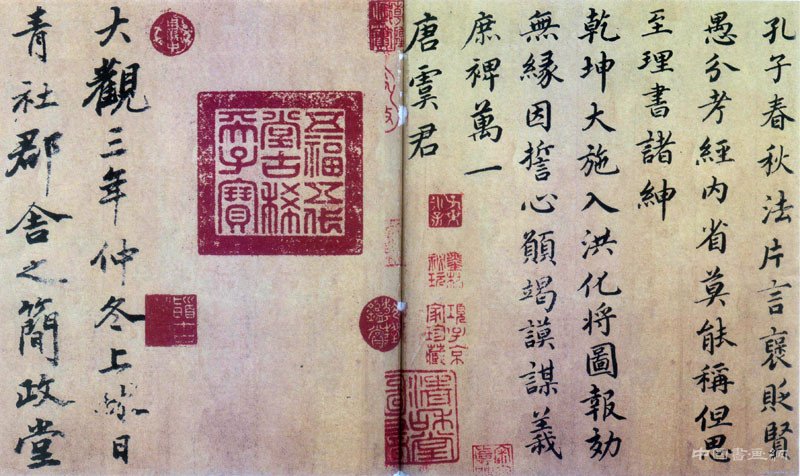 孔子春秋法片言褒貶賢
愚分考經內省莫能稱但思
至理書諸紳
乾坤大施入洪化將圖報効
無緣因誓心願竭謨謀義
庶裨萬一
唐虞君
項子京
家珍藏
五福五代
堂古稀
天子寶
大觀三年仲冬上日
青社郡舍之簡政堂